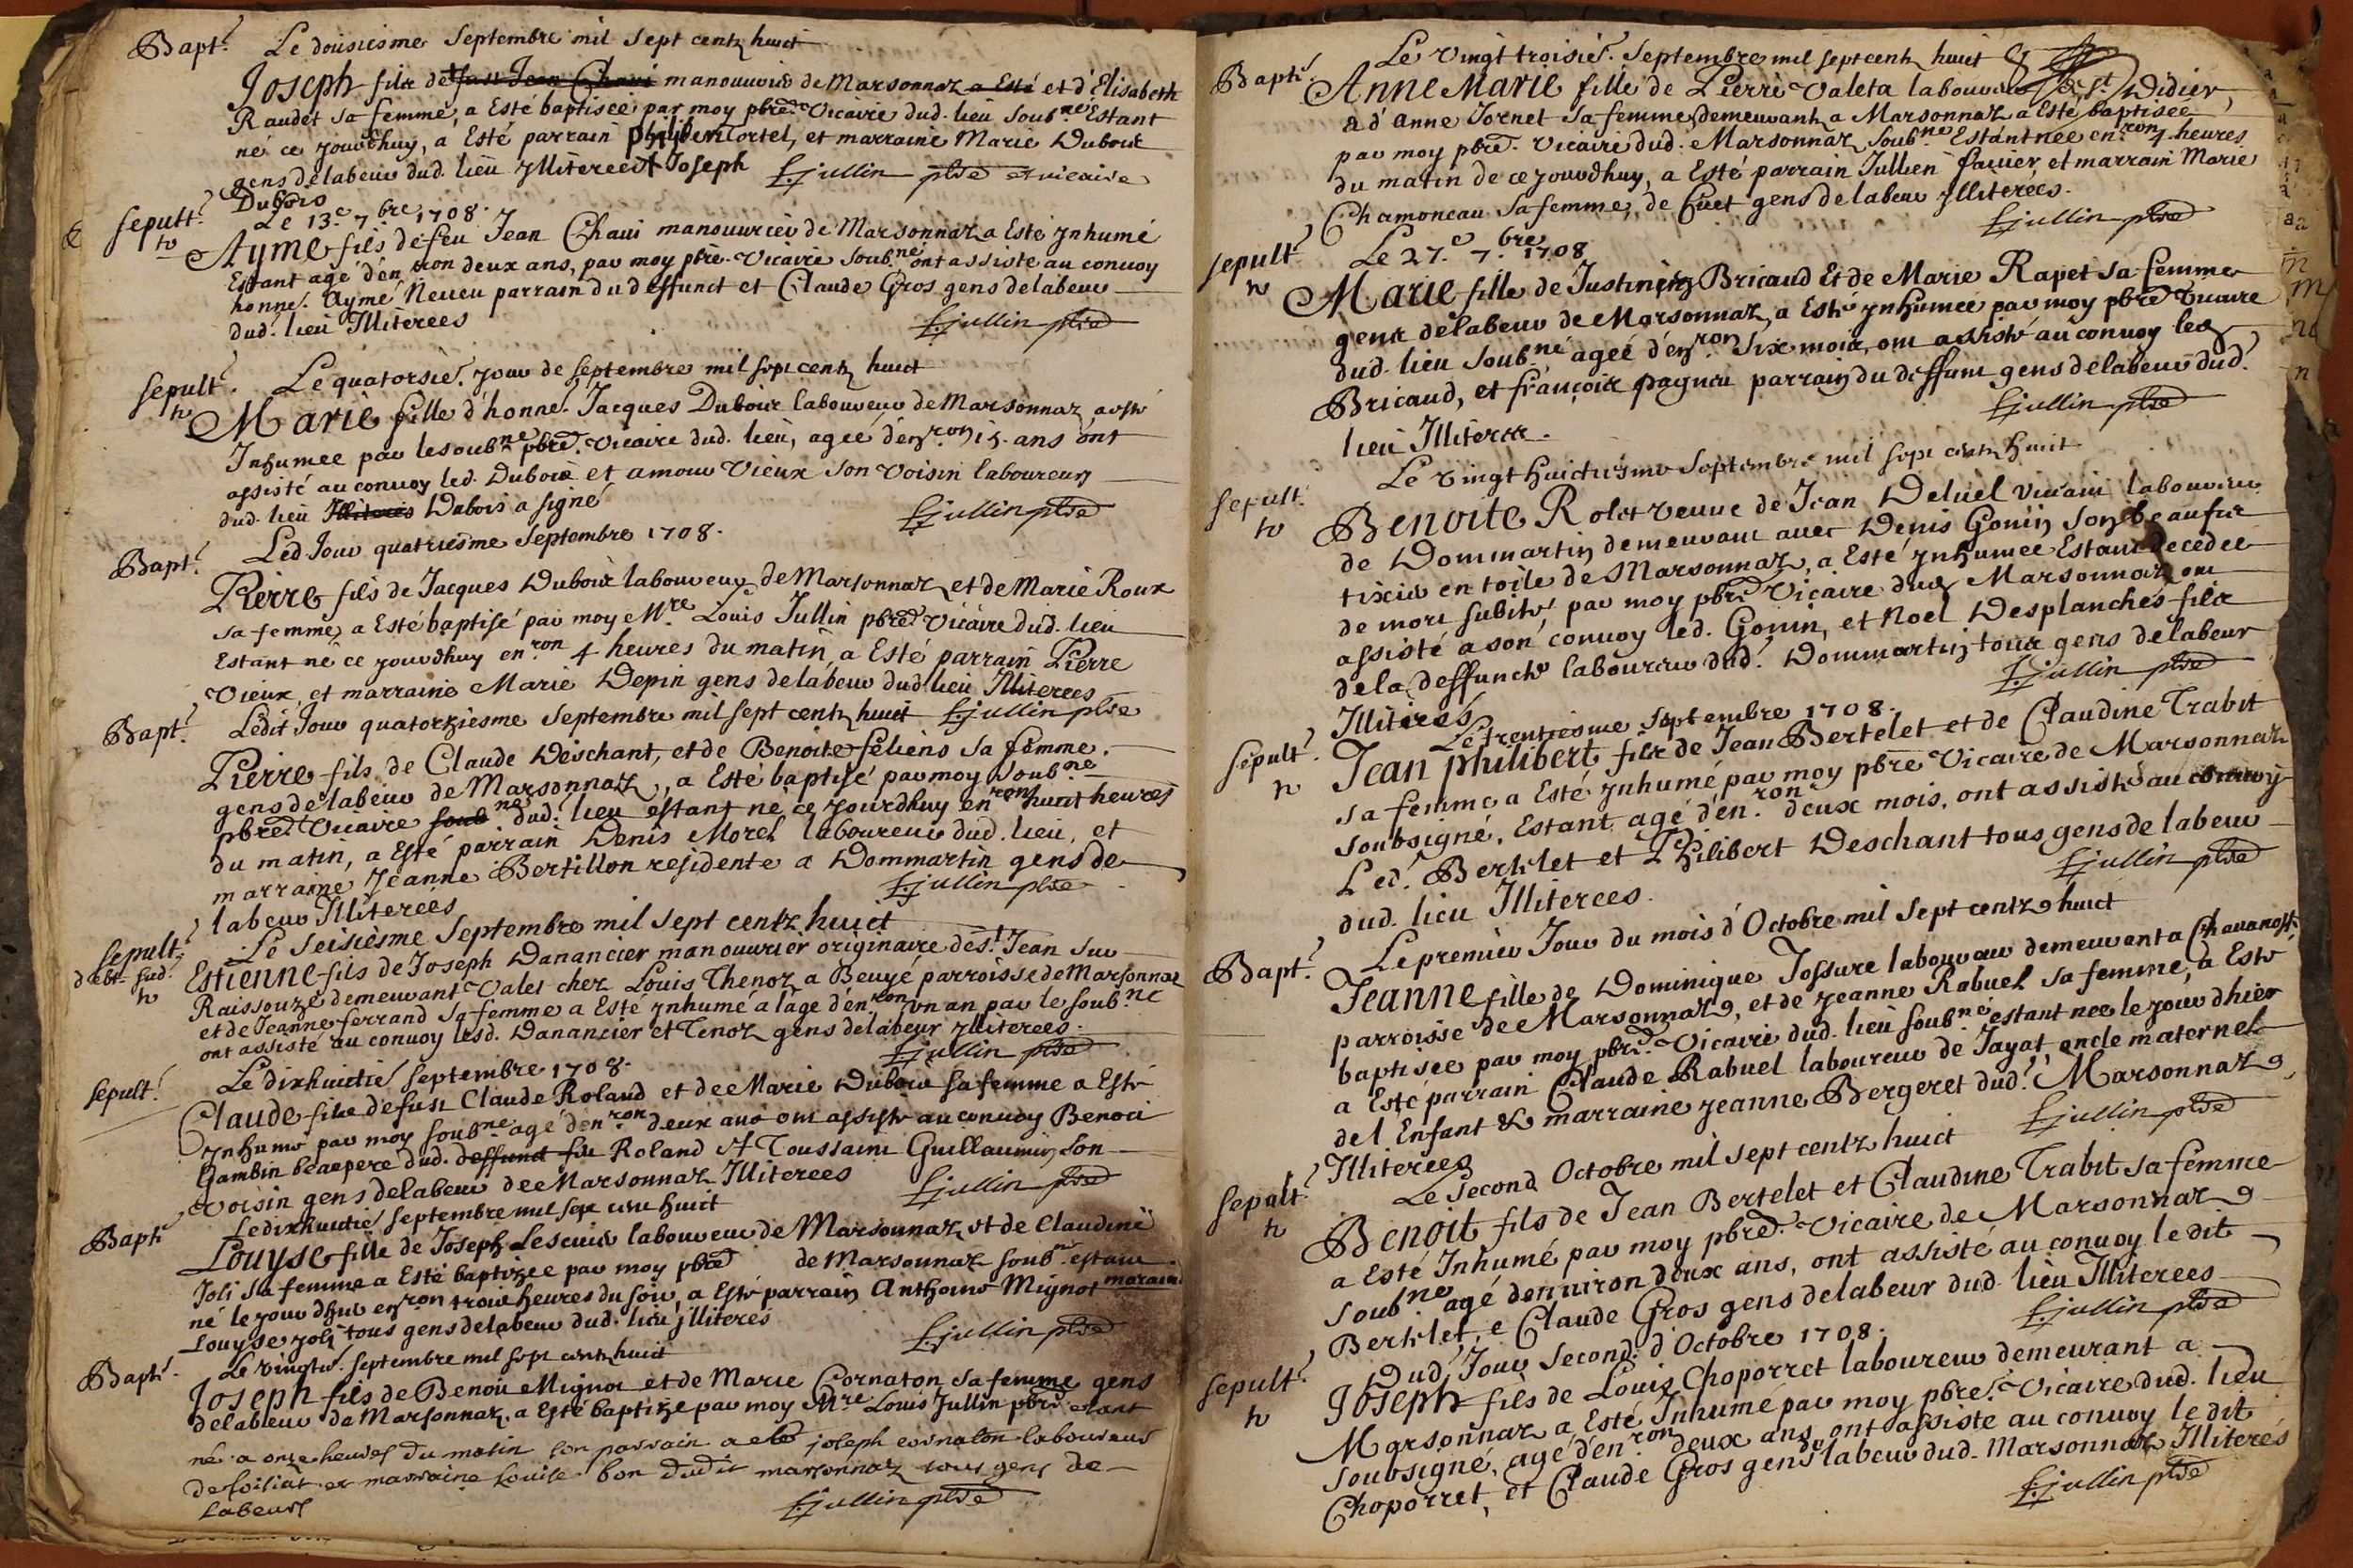 Bapt.e Le dousiesme Septembre mil Sept centz huict
Joseph fils de manouvrier de Marsonnaz a Esté et d'Elisabeth
Raudet sa femme, a Esté baptisee par moy pbre. Vicaire dud. lieu Soub.né Estant
né ce jourdhuy, a Esté parrain philiben Cortel, et marraine Marie Dubois
gens de labeur dud. lieu Illiterees Joseph L. jullin pbre et vicaire
Dubois
Sepult.e Le 13.e 7.bre 1708.
Ayme fils de feu Jean Chavi manouvrier de Marsonnaz a Esté ynhumé
Estant agé d'en.ron deux ans, par moy pbre. Vicaire Soub.né ont assiste au convoy
honne. Aymé Neveu parrain du deffunct et Claude Gros gens de labeur
dud. lieu Illiterees L. jullin pbre
Sepult.e Le quatorsie. jour de Septembre mil sept centz huict
Marie fille d'honne. Jacques Dubois laboureur de Marsonnaz a esté
Inhumee par le soub.né pbre. Vicaire dud. lieu, agée d'en.ron 15. ans ont
assisté au convoy led. Dubois et amour Vieux son Voisin laboureurs
dud. lieu Illiterés Dubois a signé L. jullin pbre
Bapt.e Led. Jour quatriesme Septembre 1708.
Pierre fils de Jacques Dubois laboureur de Marsonnaz et de Marie Roux
sa femme, a Esté baptisé par moy M.re Louis Jullin pbre Vicaire dud. lieu
Estant né ce jourdhuy en.ron 4 heures du matin, a Esté parrain Pierre
Vieux, et marraine Marie Depin gens de labeur dud. lieu Illiterees
Bapt.e Ledit Jour quatorziesme Septembre mil sept centz huict L. jullin pbre
Pierre fils de Claude Deschant, et de Benoite feliens sa femme.
gens de labeur de Marsonnaz, a Esté baptisé par moy Soub.né
pbre. Vicaire soub.né dud. lieu estant né ce jourdhuy en.ron huit heures
du matin, a Esté parrain Denis Morel laboureur dud. lieu, et
marraine Jeanne Bertillon residente a Dommartin gens de
labeur Illiterees L. jullin pbre
Sepult.e Le Seisiesme Septembre mil Sept centz huict
Estienne fils de Joseph Danancier manouvrier originaire de S.t Jean Sur
Raissouze demeurant Valet chez Louis Thenoz a Beuyé parroisse de Marsonnaz
et de Jeanne ferrand sa femme a Esté ynhumé a l'age d'en.ron un an par le soub.né
ont assisté au convoy lesd. Danancier et Tenoz gens de labeur illiterees.
L. jullin pbre
Sepult.e Le dixhuitie. Septembre 1708.
Claude fils de fust Claude Roland et de Marie Dubois sa femme a Esté
ynhumé par moy soub.né agé d'en.ron deux ans ont assisté au convoy Benoit
Gambin beaupere dud. deffunct fils Roland et Toussaint Guillaumin son
voisin gens de labeur de Marsonnaz Illiterees L. jullin pbre
Bapt.e Le dixhuitie. Septembre mil sept cent huict
Louyse fille de Joseph Lescuier laboureur de Marsonnaz et de Claudine
Joli sa femme a Esté baptizee par moy pbre de Marsonnaz soub.né estant
né le jour dhui en.ron trois heures du soir, a Esté parrain Anthoine Mignot maraine
Louyse joli tous gens de labeur dud. lieu illiterés L. jullin pbre
Bapt.e Le vingtie. Septembre mil sept centz huict
Joseph fils de Benoit Mignot et de Marie Cornaton sa femme gens
de labeur de Marsonnaz. a Esté baptize par moy M.re Louis Jullin pbre estant
né a onze heures du matin son parrain a esté joseph cornaton laboureur
de foissiat et marraine Louise bon dudit marsonnaz tous gens de
Labeurs L. jullin pbre
Bapt.e Le Vingt troisie. Septembre mil sept centz huict
Anne Marie fille de Pierre Valeta laboureur de S.t Didier,
et d'anne Jornet sa femme, demeurant a Marsonnaz a Esté baptisée
par moy pbre. Vicaire dud. Marsonnaz, soub.né Estant nee en.ron 4 heures
du matin de ce jourdhuy, a Esté parrain Jullien favier et marrain Marie
Chamoneau sa femme, de Cuet gens de labeur Illiterées.
L. jullin pbre
Sepult.e Le 27.e 7.bre 1708
Marie fille de Justinien Bricaud Et de Marie Rapet sa femme
gens de labeur de Marsonnaz, a Esté ynhumee par moy pbre Vicaire
dud. lieu Soub.né agée d'en.ron six mois, ont assisté au convoy led.
Bricaud, et françois pagneu parrain du deffunt gens de labeur dud.
lieu Illiteres. L. jullin pbre
Sepult.e Le Vingt huictiesme Septembre mil sept centz huict
Benoite Rolet veuve de Jean Deluel vivant laboureur
de Dommartin demeurant avec Denis Gonin son beaufils
tixier en toile de Marsonnaz, a Esté ynhumee Estant decedee
de mort subite, par moy pbre Vicaire dud. Marsonnaz ont
assisté a son convoy led. Gonin, et Noel Desplanches fils
de la deffuncte laboureur dud. Dommartin tous gens de labeur
Illiterés L. jullin pbre
Sepult.e Le trentiesme Septembre 1708.
Jean philibert fils de Jean Bertelet et de Claudine Trabit
sa femme a Esté ynhumé par moy pbre Vicaire de Marsonnaz
soubsigné, Estant agé d'en.ron deux mois, ont assisté au convoy
Led. Bertelet et Philibert Deschant tous gens de labeur
dud. lieu Illiterees. L. jullin pbre
Bapt.e Le premier Jour du mois d'Octobre mil Sept centz huict
Jeanne fille de Dominique Jossure laboureur demeurant a Chavanoss
parroisse de Marsonnaz, et de Jeanne Rabuel sa femme, a Esté
baptisee par moy pbre. Vicaire dud. lieu soub.né estant nee le jour dhier
a Esté parrain Claude Rabuel laboureur de Jayat, oncle maternel
del Enfant & marraine Jeanne Bergeret dud. Marsonnaz
Illiterees L. jullin pbre
Sepult.e Le Second Octobre mil sept centz huict
Benoit fils de Jean Bertelet et Claudine Trabit sa femme
a Esté Inhumé par moy pbre. Vicaire de Marsonnaz
soub.né agé denviron deux ans, ont assisté au convoy le dit
Bertelet, e Claude Gros gens de labeur dud. lieu Illiterees
L. jullin pbre
Sepult.e Dud. Jour Second d'Octobre 1708.
Joseph fils de Louis Choporret laboureur demeurant a
Marsonnaz a Esté Inhumé par moy pbre. Vicaire dud. lieu
soubsigné, agé d'en.ron deux ans, ont assisté au convoy le dit
Choporret, et Claude Gros gens de labeur dud. Marsonnaz Illiterés
L. jullin pbre